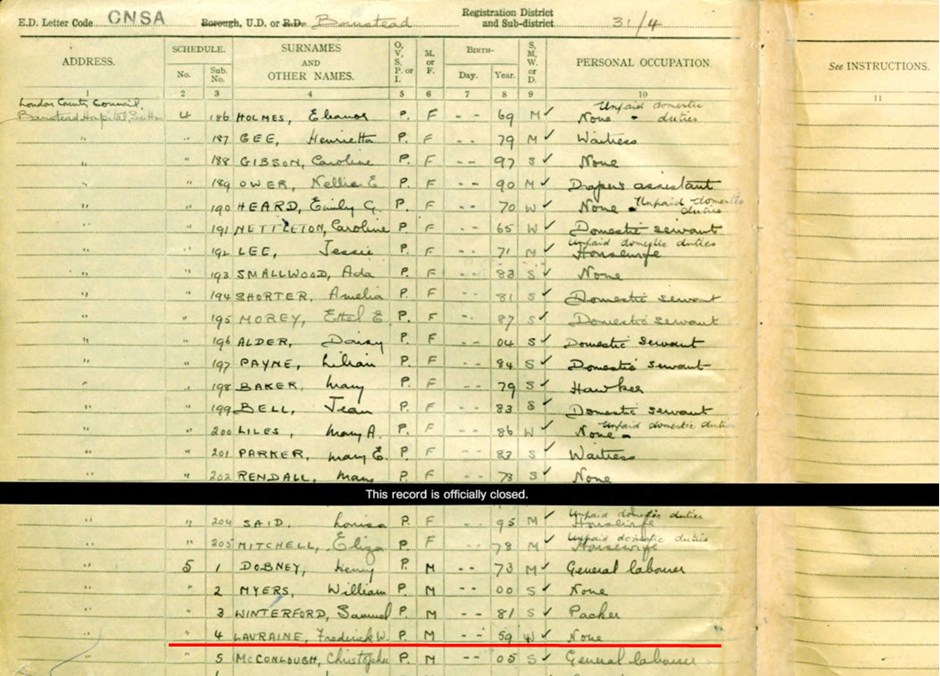 E.D. Letter Code CNSA Borough, U.D. or R.D. Banstead Registration District and Sub-district 31/4
ADDRESS. SCHEDULE. No. Sub. No. SURNAMES AND OTHER NAMES. O, V, S, P, or I. M. or F. BIRTH- Day. Year. S, M, W, or D. PERSONAL OCCUPATION. See INSTRUCTIONS.
1 2 3 4 5 6 7 8 9 10 11
London County Council,
Unpaid domestic
Banstead Hospital, Sutton 4 186 HOLMES, Eleanor P. F - - 69 M ✓ None duties
" " 187 GEE, Henrietta P. F - - 79 M ✓ Waitress
" " 188 GIBSON, Caroline P. F - - 97 S ✓ None
" " 189 OWER, Nellie E. P. F - - 90 M ✓ Drapers assistant
" " 190 HEARD, Emily G. P. F - - 70 W ✓ None Unpaid domestic duties
" " 191 NETTLETON, Caroline P. F - - 65 W ✓ Domestic servant
Unpaid domestic duties
" " 192 LEE, Jessie P. F - - 71 M ✓ Housewife
" " 193 SMALLWOOD, Ada P. F - - 83 S ✓ None
" " 194 SHORTER, Amelia P. F - - 81 S ✓ Domestic servant
" " 195 MOREY, Ethel E P. F - - 87 S ✓ Domestic servant
" " 196 ALDER, Daisy P. F - - 04 S ✓ Domestic servant
" " 197 PAYNE, Lilian P. F - - 84 S ✓ Domestic servant
" " 198 BAKER, Mary P. F - - 79 S ✓ Hawker
" " 199 BELL, Jean P. F - - 83 S ✓ Domestic servant
" " 200 LILES, Mary A. P. F - - 86 W ✓ None Unpaid domestic duties
" " 201 PARKER, Mary E. P. F - - 83 S ✓ Waitress
" " 202 RENDALL, Mary P. F - - 78 S ✓ None
This record is officially closed.
Unpaid domestic duties
" " 204 SAID. Louisa P. F - - 95 M ✓ Housewife
Unpaid domestic duties
" " 205 MITCHELL, Eliza P. F - - 78 M ✓ Housewife
" 5 1 DOBNEY, Henry P. M - - 73 M ✓ General labourer
" " 2 MYERS, William P. M - - 00 S ✓ None
" " 3 WINTERFORD, Samuel P. M - - 81 S ✓ Packer
" " 4 LAVRAINE, Frederick W. P. M - - 59 W ✓ None
" " 5 McCONLOUGH, Christopher P. M - - 05 S ✓ General labourer